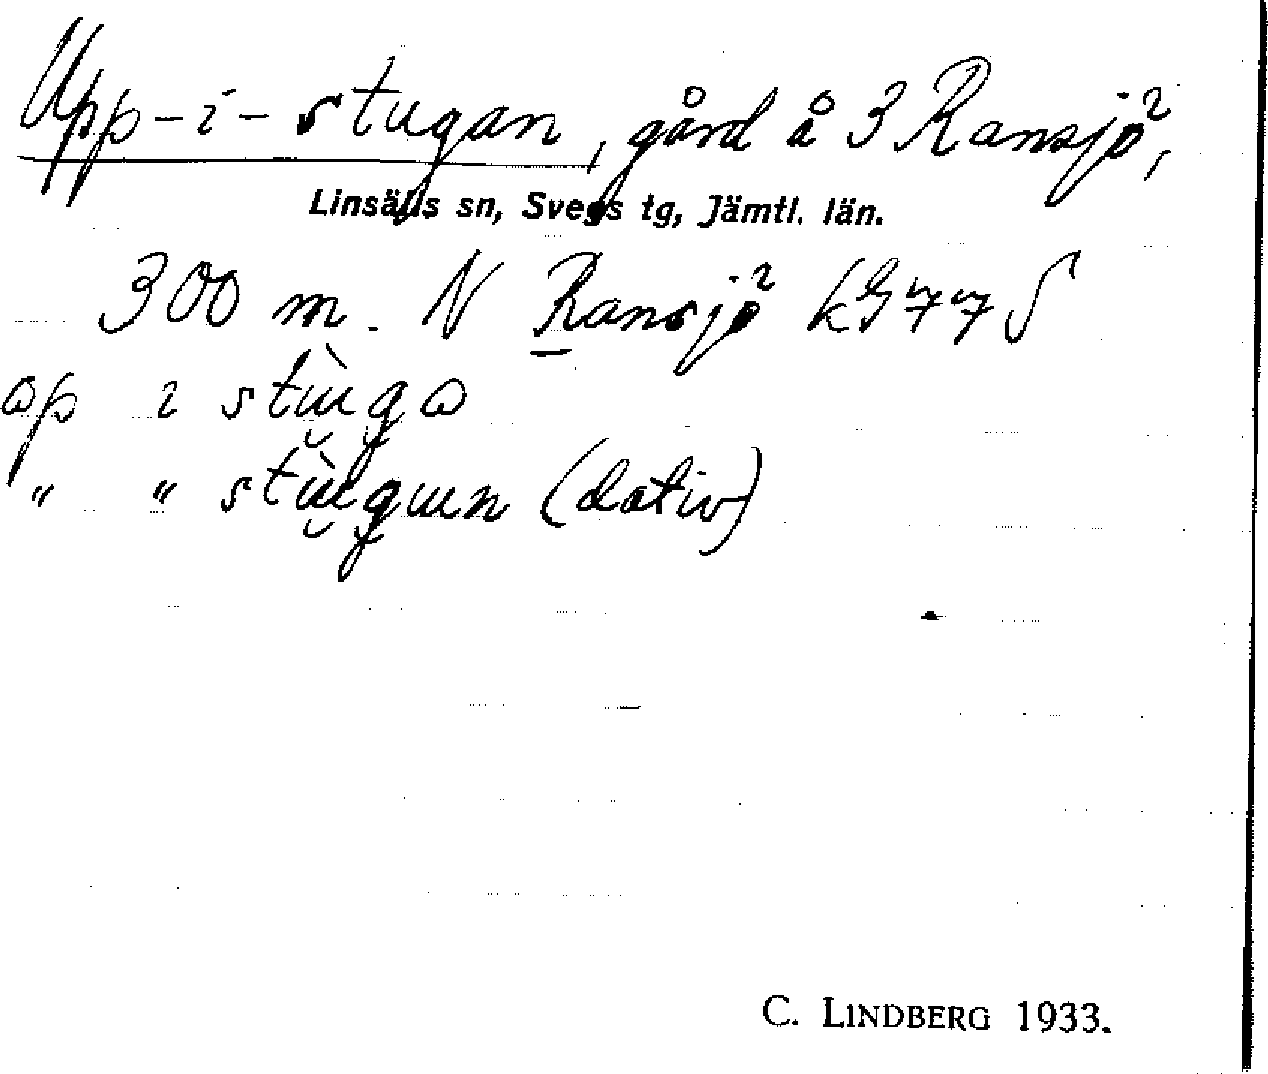 Upp-i-stugan, gård å 3 Ransjö,
Linsälls sn, Svegs tg, Jämtl. län.
300 m. N Ransjö kG77S
ɷp i stùgɷ
" " stùgɯn (dativ)
C. LINDBERG 1933.